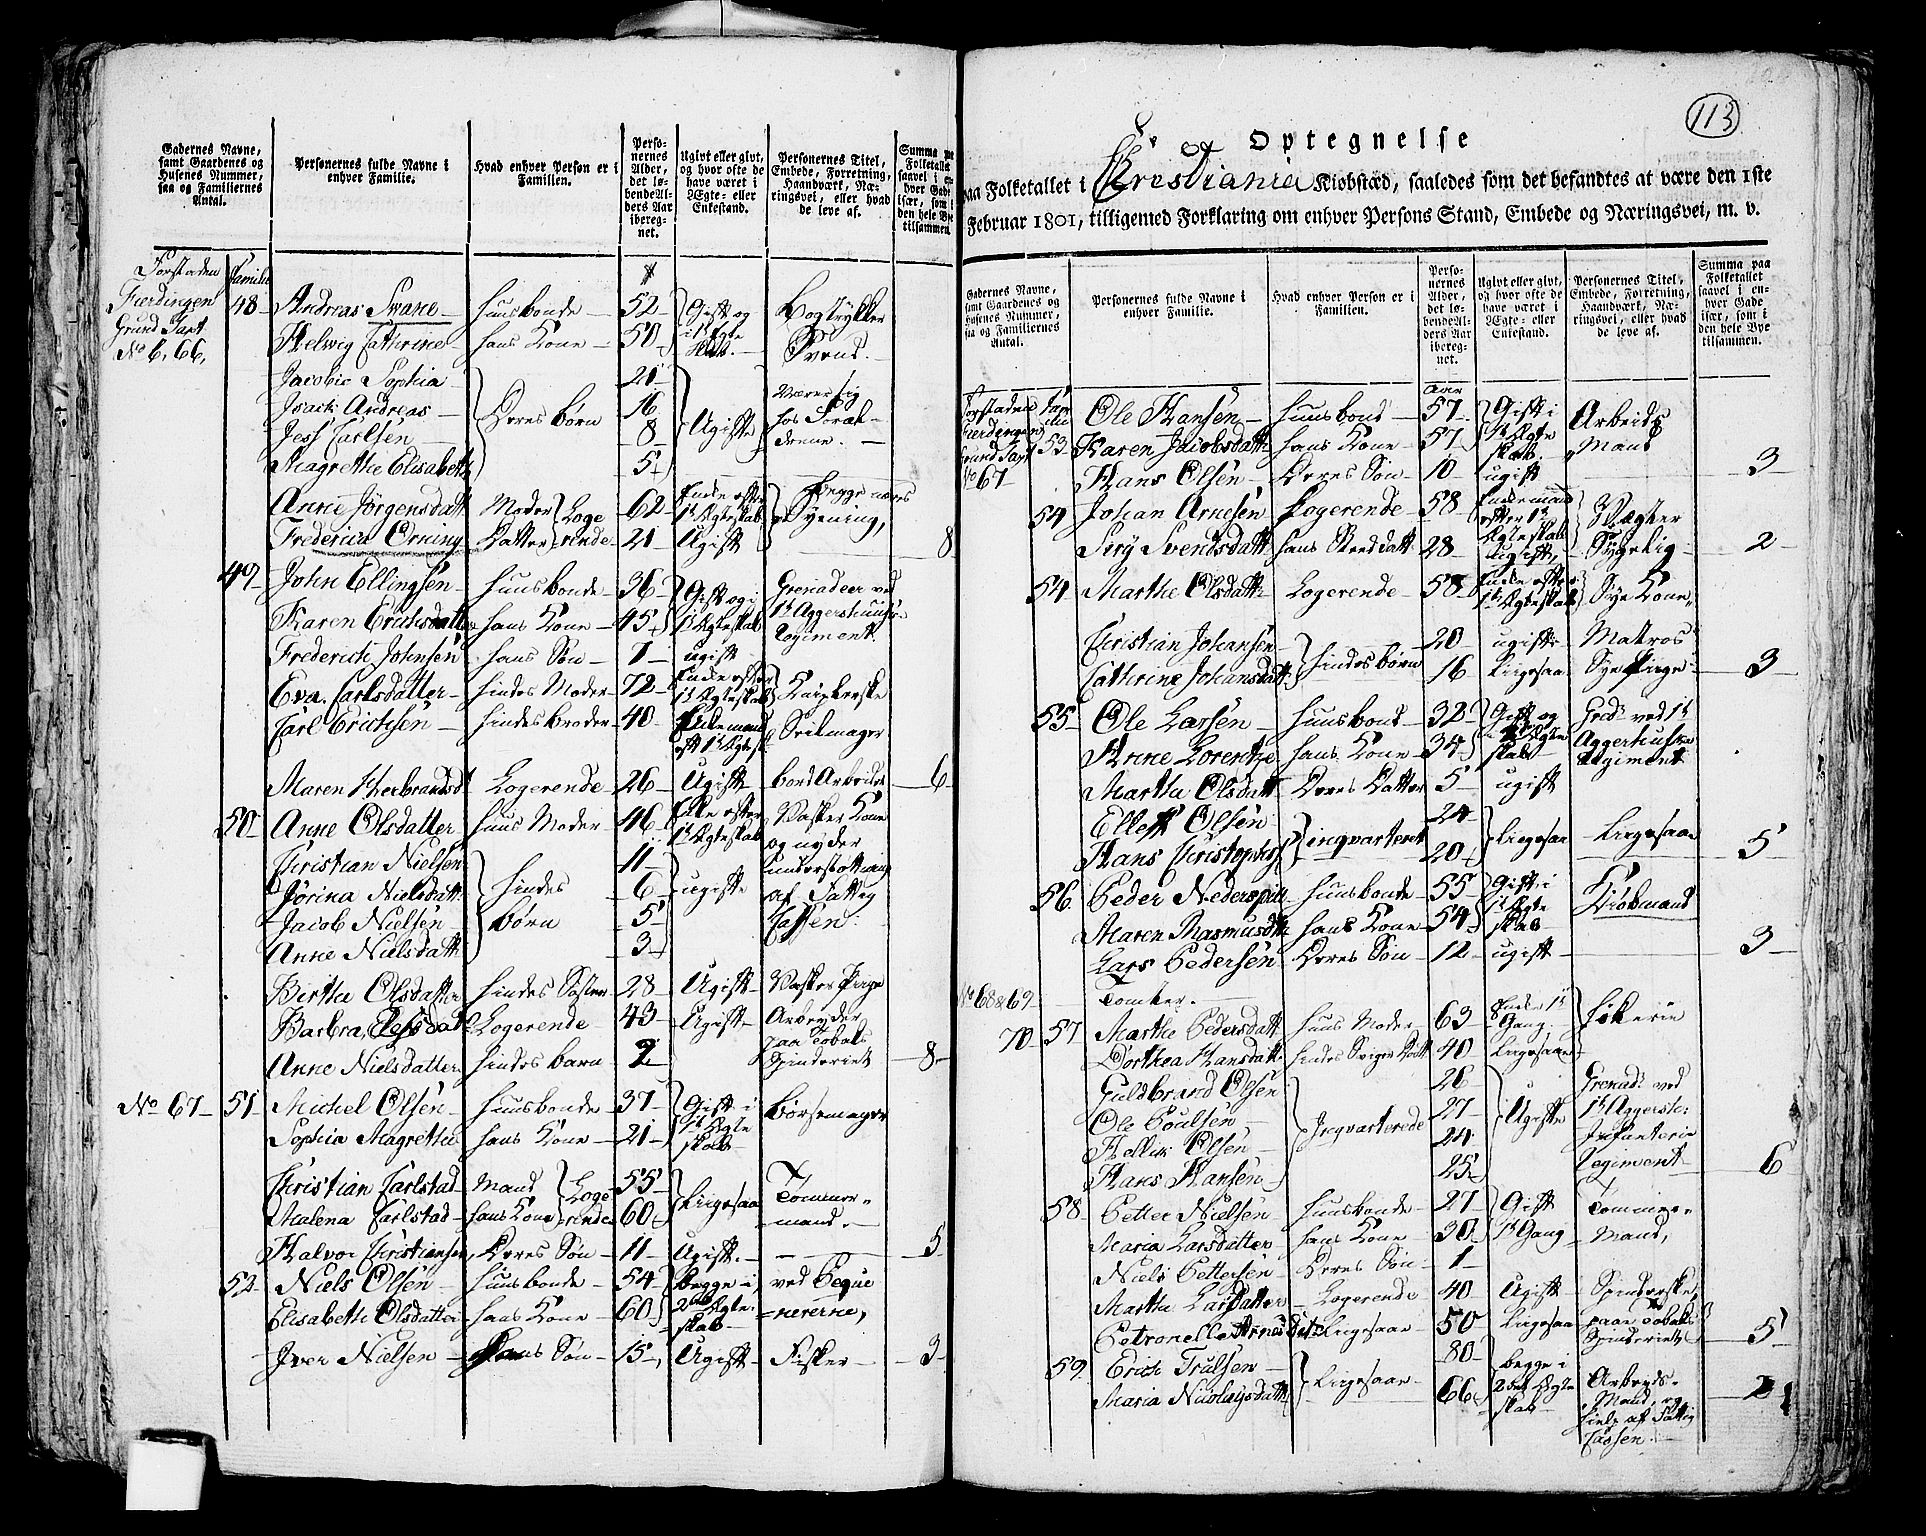 Gadernes Navne, samt Gaardenes og Husenes Nummer, saa og Familiernes Antal.
Personernes fulde Navne i enhver Familie.
Hvad enhver Person er i Familien.
Personernes Alder, det løbende Alders Aar iberegnet.
Ugivt eller givt, og hvor ofte de have været i Ægte- eller Enkestand.
Personernes Titel, Embede, Forretning, Haandværk, Næringsvei, eller hvad de leve af.
Forstaden Familie
Fierdingen 48 Andreas Swane Huusbonde 52 Gift og Bogtrykker
Grund Part Helwig Cathrine hans Kone 50 i 1te Ægteskab Svend
No 6, 66, Jacobie Sophia 21
Isach Andreas Deres børn 16 Ugifte
Jess Carlsen 8
Magrethe Elisabeth 5
Anne Jörgensdatt Moder Logerende 62 Enke efter 1te Ægteskab begge næres
Fredericia Orning Datter 21 Ugift Syening, 8
49 John Ellingsen Huusbonde 36 Gift og i Grenadeer ved
Karen Erichsdatter hans Kone 45 1te Ægteskab 1te Aggershuus Regiment
Frederich Johnsen hans Søn 7 ugift
Eva Carlsdatter hindes Moder 72 Enke efter 1te Ægteskab
Carl Erichsen hindes broder 40 Enkemand eft 1te Ægtesk
Maren Herbrandsd Logerende 26 Ugift bord Arbeider 6
50 Anne Olsdatter Huus Moder 46 Enke efter Vasker Kone
1te Ægteskab og nyder
Christian Nielsen 11 understøttning
Jørina Nielsdatt hindes 6 ugifte af Fattig
Jacob Nielsen børn 5 Cassen
Anne Nielsdatt 3
Birthe Olsdatter hindes Søster 28 Ugift Vasker Pige
Barbra Elessdatt Logerende 43 Ugift Arbeyder
Anne Nielsdatter hindes barn 2 paa Tobaks Spinderiet 8
No 67 51 Michel Olsen Huusbonde 37 Gift i Børsemager
Sophia Magretha hans Kone 21 1te Ægteskab
Christian Carlstad Mand Logerende 55 Ligesaa Tømmer=
Malena Carlstad hans Kone 60 mand.
Halvor Christiansen Deres Søn 11 Ugift 5
52 Niels Olsen Huusbonde 54 begge i ved Beque=
Elisabeth Olsdatter hans Kone 60 2det Ægteskab
Iver Nielsen hans Søn 15 Ugift Fisker 3
113
Optegnelse
paa Folketallet i Christiania Kiøbstæd, saaledes som det befandtes at være den 1ste
Februar 1801, tilligemed Forklaring om enhver Persons Stand, Embede og Næringsvei, m. v.
Gadernes Navne, samt Gaardenes og Husenes Nummer, saa og Familiernes Antal.
Personernes fulde Navne i enhver Familie.
Hvad enhver Person er i Familien.
Personernes Alder, det løbende Alders Aar iberegnet.
Ugivt eller givt, og hvor ofte de have været i Ægte- eller Enkestand.
Personernes Titel, Embede, Forretning, Haandværk, Næringsvei, eller hvad de leve af.
Summa paa Folketallet saavel i enhver Gade især, som i den hele Bye tilsammen.
Forstaden Familie Ole Hansen Huusbond 57 Gift i Arbeids
Fierdingen 53 Karen Jacobsdatt hans Kone 57 1te Ægteskab Mand
Grund Part No 67 Hans Olsen Deres Søn 10 ugift 3
54 Johan Arnesen Logerende 58 Enkemand efter 1te Ægteskab Vægter
Siry Svendsdatt hans Steddatt 28 ugift Sygelig 2
54 Marthe Olsdatt Logerende 58 Enke efter 1te Ægteskab Sye Kone
Christian Johansen hindes børn 20 ugift Matros
Cathrine Johansdatt 16 Ligesaa Sye Pige 3
55 Ole Larsen Huusbond 32 Gift og Gred ved 1te
Anne Lorentze hans Kone 34 Ægteskab Aggerhuske Regiment
Martha Olsdatt Deres Datter 5 ugift
Ellest Olsen 24
Hans Christophers inqvarteret 20 Ligesaa Ligesaa 5
56 Peder Nederspill Huusbonde 55 Gift i Kiøbmand
Maren Rasmusdtt hans Kone 54 1te Ægteskab
Lars Pedersen Deres Søn 12 ugift 3
No 68 & 69 Tomter.
70 57 Marthe Pedersdatt Huus Moder 63 Enke 1te Gang Høkerie
Dorthea Hansdatt hindes Sviger Datt 40 Ligesaa
Guldbrand Olsen 26 Grenad ved
Ole Poulsen Inqvarterede 27 Ugifte 1te Aggersh:
Hellik Olsen 24 Infanterie
Hans Hansen 25 Regiment 6
58 Petter Nielsen Huusbonde 27 Gift Tømmer=
Maria Larsdatter hans Kone 30 1te Gang Mand,
Niels Pettersen Deres Søn 1
Martha Larsdatter Logerende 40 Ugift Spinderske
Petronelle Arnesdatt Ligesaa 50 Ligesaa paa Tobaks Spinderiet 5
59 Erich Trulsen Ligesaa 80 begge i Arbeyds-
Maria Nicolaysdatt 66 2det Ægteskab Mand, og hielp af Fattig Cassen 2